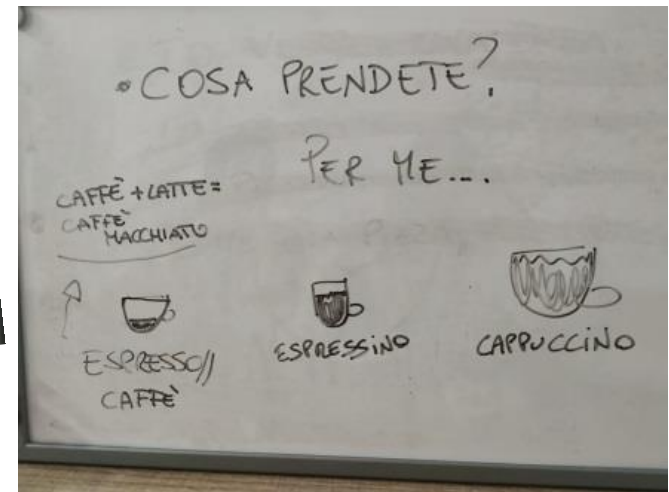 • COSA PRENDETE?
PER ME....
CAFFÈ + LATTE =
CAFFÈ
MACCHIATO
ESPRESSO//
CAFFÈ
ESPRESSINO
CAPPUCCINO